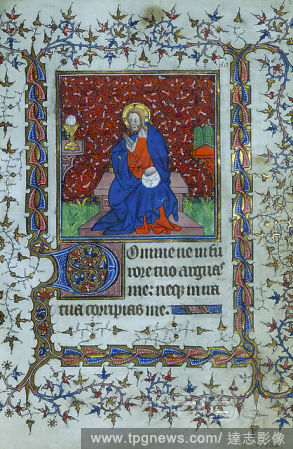 Domine ne in fu
rore tuo arguas
me: neqz in ira
tua corripias me.
www.tpgnews.com/ 達志影像